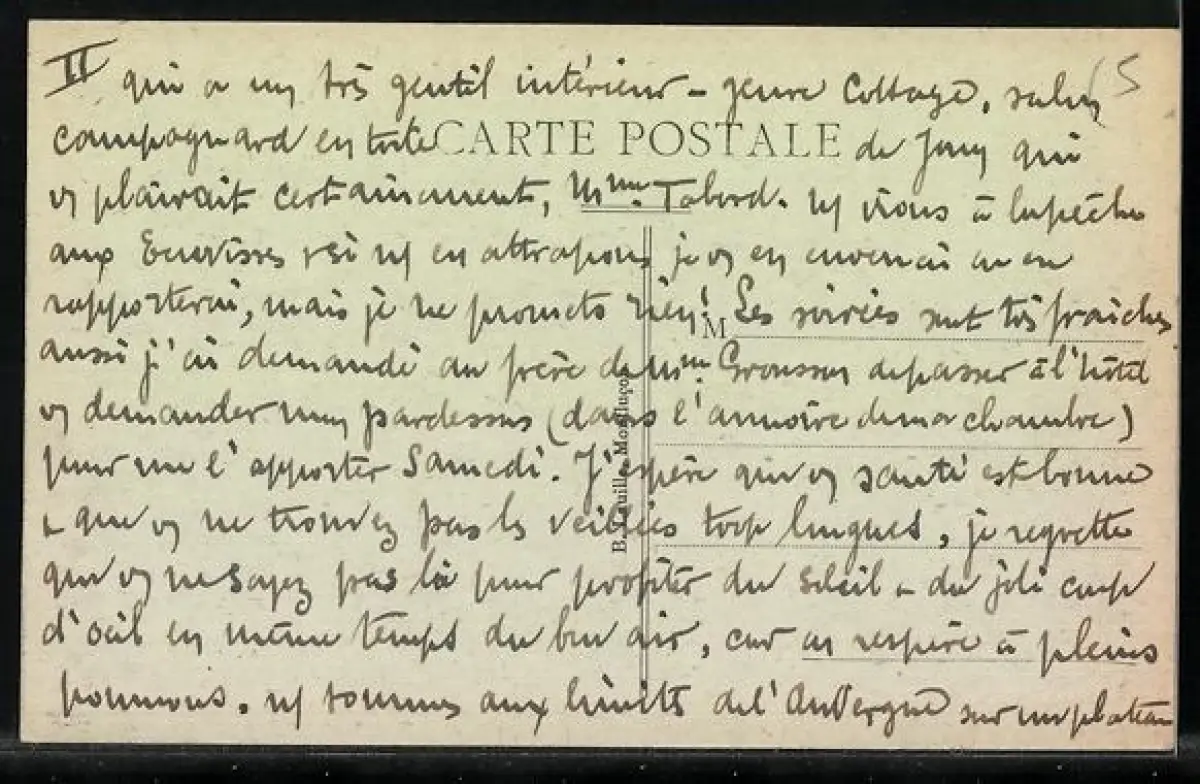 II qui a un très gentil intérieur - genre Cottage, salon 65
campagnard en toile CARTE POSTALE de Jouy qui
vs plairait certainement, Mme. Tabord. ns irons à la pêche
aux Ecrevisses & si ns en attrapons je vs en enverrai ou en
rapporterai, mais je ne promets rien! Les soirées sont très fraiches
M
aussi j'ai demandé au frère de Mme. Grousson de passer à l'hôtel
vs demander mon pardessus (dans l'armoire de ma chambre)
pour me l'apporter Samedi. J'espère que vs santé est bonne
& que vs ne trouvez pas les veillées trop longues, je regrette
que vs ne soyez pas là pour profiter du soleil & du joli coup
d'oeil en même temps du bon air, car on respire à pleins
poumons. ns sommes aux limites de l'Auvergne sur un plateau
B. Montluçon